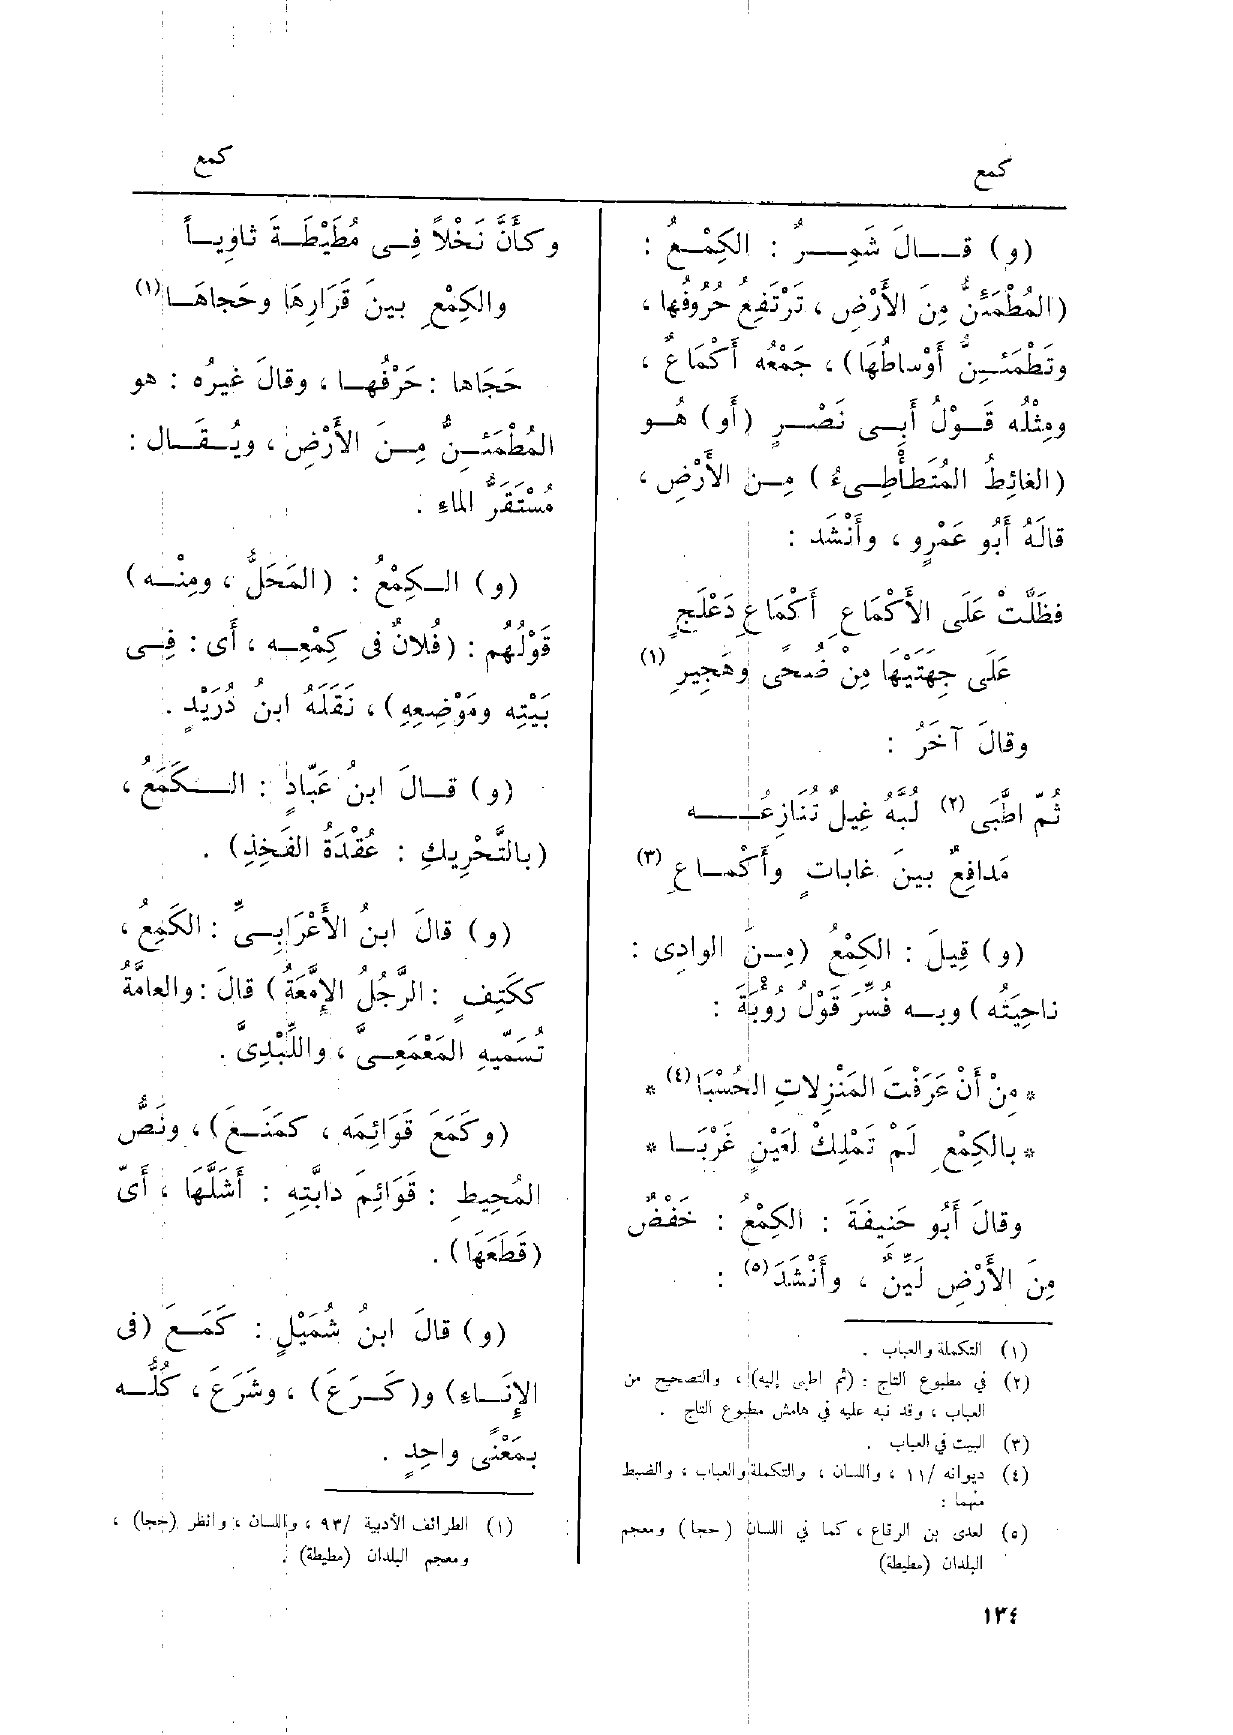 كمع
كمع
(و) قــالَ شَمِــرٌ : الكِمْــعُ :
(المُطْمَئنُّ مِنَ الأَرْضِ ، تَرْتَفِعُ حُرُوفُها ،
وتَطْمَئــِنُّ أَوْساطُهَا) ، جَمْعُه أَكْمَاعٌ ،
ومِثْلُه قَــوْلُ أَبِــى نَصْــرٍ (أَو) هُــو
(الغائِطُ المُتَطَأْطِــىءُ) مِــن الأَرْضِ ،
قالَهُ أَبُو عَمْرٍو ، وأَنْشَد :
فظَلَّتْ عَلَى الأَكْمَاعِ أَكْمَاعِ دَعْلَجٍ
عَلَى جِهَتَيْهَا مِنْ ضُحًى وهَجِيرِ (١)
وقالَ آخَرُ :
ثُمّ اطَّبَى (٢) لُبَّهُ غِيلٌ تُنَازِعُــــه
مَدافِعٌ بينَ غاباتٍ وأَكْمــاعِ (٣)
(و) قِيلَ : الكِمْعُ (مِــنَ الوادِى :
ناحِيَتُه) وبــه فُسِّرَ قَوْلُ رُوبَةَ :
* مِنْ أَنْ عَرَفْتَ المَنْزِلاتِ الحُسْبَا (٤) *
* بالكِمْعِ لَمْ تَمْلِكْ لعَيْنٍ غَرْبَــا *
وقالَ أَبُو حَنِيفَةَ : الكِمْعُ : خَفْضٌ
مِنَ الأَرْضِ لَيِّنٌ ، وأَنْشَدَ (٥) :
(١) التكملة والعباب .
(٢) في مطبوع التاج : (ثم اطبى إليه) ، والتصحيح من
العباب ، وقد نبه عليه في هامش مطبوع التاج .
(٣) البيت في العباب .
(٤) ديوانه /١١ ، واللسان ، والتكملة والعباب ، والضبط
منهما :
(٥) لعدى بن الرقاع ، كما في اللسان (حجا) ومعجم
البلدان (مطيطة)
١٣٤
وكأَنَّ نَخْلاً فِــى مُطَيْطَــةَ ثاوِيــاً
والكِمْعِ بينَ قَرَارِهَا وحَجاهَــا (١)
حَجَاها : حَرْفُهــا ، وقالَ غيرُه : هو
المُطْمَئــِنُّ مِــنَ الأَرْضِ ، ويُــقــال :
مُسْتَقَرُّ الماء .
(و) الــكِمْعُ : (المَحَلُّ ، ومِنْــه)
قَوْلُهُم : (فُلانٌ فى كِمْعِــه ، أَى : فِــى
بَيْتِه ومَوْضِعِهِ) ، نَقَلَهُ ابنُ دُرَيْدٍ .
(و) قــالَ ابنُ عَبّادٍ : الــكَمَعُ ،
(بالتَّحْرِيكِ : عُقْدَةُ الفَخِذِ) .
(و) قالَ ابنُ الأَعْرَابِــىِّ : الكَمِعُ ،
ككَتِفٍ : الرَّجُلُ الإِمَّعَةُ) قالَ : والعامَّةُ
تُسَمِّيهِ المَعْمَعِــىَّ ، واللِّبْدِىَّ .
(وكَمَعَ قَوَائِمَه ، كمَنَــعَ) ، ونَصُّ
المُحِيطِ : قَوَائِمَ دابَّتِهِ : أَشَلَّهَا ، أَىّ
(قَطَعَهَا) .
(و) قالَ ابنُ شُمَيْلٍ : كَمَــعَ (فى
الإِنَــاء) و(كَــرَعَ) ، وشَرَعَ ، كُلُّــه
بمَعْنًى واحِدٍ .
(١) الطرائف الأدبية /٩٣ ، واللسان ، وانظر (حجا) ،
ومعجم البلدان (مطيطة) .